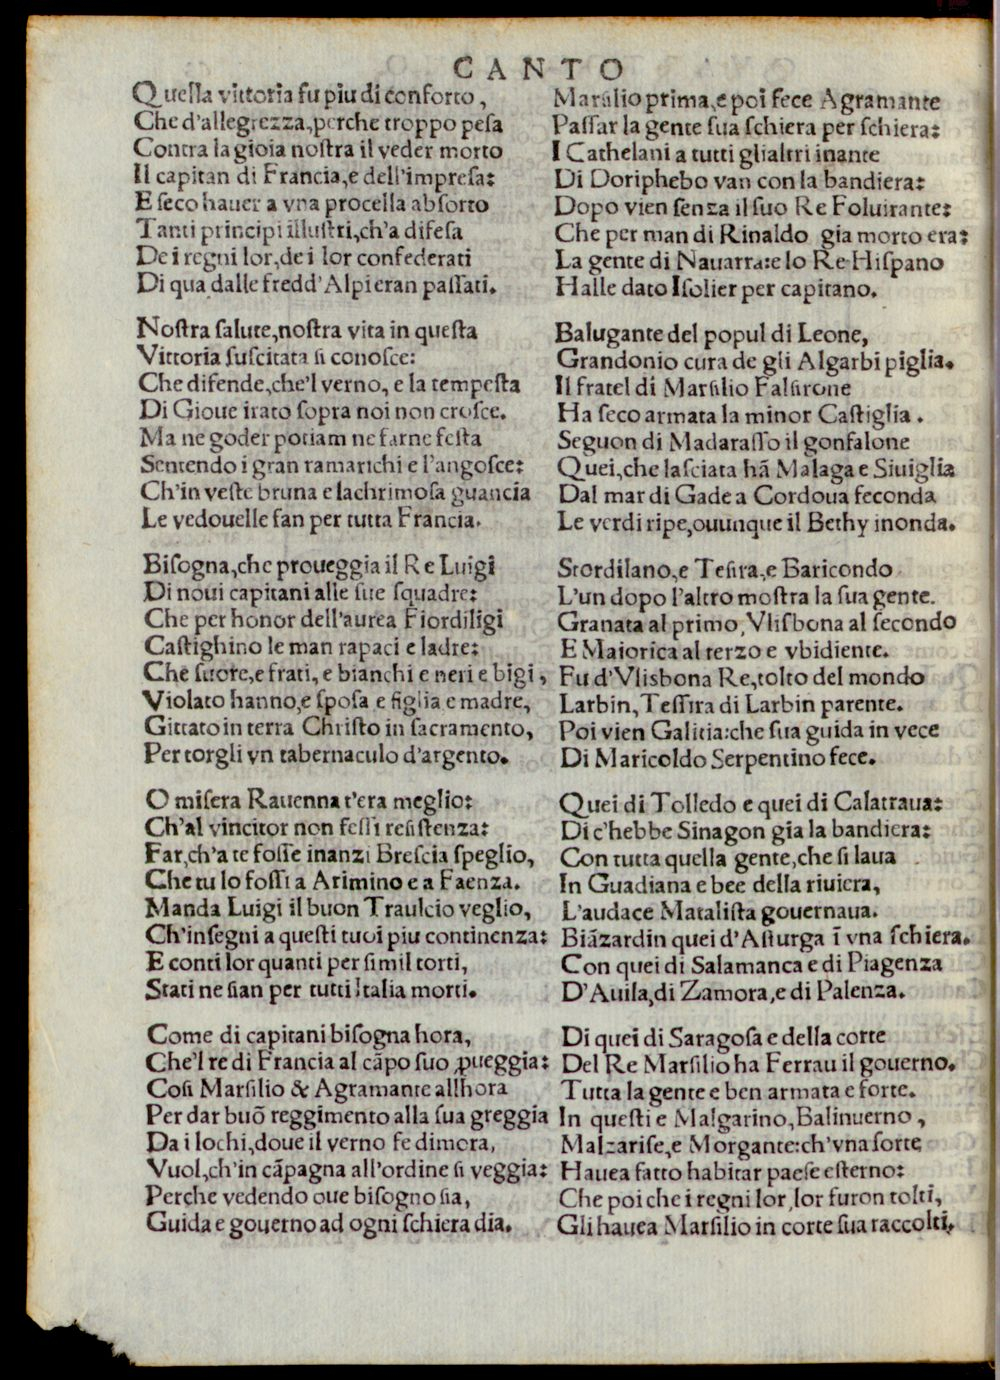 CANTO
Quella vittoria fu piu di conforto,
Che d'allegrezza, perche troppo pesa
Contra la gioia nostra il veder morto
Il capitan di Francia, e dell'impresa:
E seco hauer a vna procella absorto
Tanti principi illustri, ch'a difesa
De i regni lor, de i lor confederati
Di qua dalle fredd'Alpi eran passati.
Nostra salute, nostra vita in questa
Vittoria suscitata si conosce:
Che difende, che'l verno, e la tempesta
Di Gioue irato sopra noi non crosce.
Ma ne goder potiam ne farne festa
Sentendo i gran ramarichi e l'angosce:
Ch'in veste bruna e lachrimosa guancia
Le vedouelle fan per tutta Francia.
Bisogna, che proueggia il Re Luigi
Di noui capitani alle sue squadre:
Che per honor dell'aurea Fiordiligi
Castighino le man rapaci e ladre:
Che suore, e frati, e bianchi e neri e bigi,
Violato hanno, e sposa e figlia e madre,
Gittato in terra Christo in sacramento,
Per torgli vn tabernaculo d'argento.
O misera Rauenna t'era meglio:
Ch'al vincitor non fessi resistenza:
Far, ch'a te fosse inanzi Brescia speglio,
Che tu lo fossi a Arimino e a Faenza.
Manda Luigi il buon Traulcio veglio,
Ch'insegni a questi tuoi piu continenza:
E conti lor quanti per simil torti,
Stati ne sian per tutti Italia morti.
Come di capitani bisogna hora,
Che'l re di Francia al cãpo suo ꝓueggia:
Cosi Marsilio & Agramante allhora
Per dar buõ reggimento alla sua greggia
Da i lochi, doue il verno fe dimora,
Vuol, ch'in cãpagna all'ordine si veggia:
Perche vedendo oue bisogno sia,
Guida e gouerno ad ogni schiera dia.
Marsilio prima, e poi fece Agramante
Passar la gente sua schiera per schiera:
I Cathelani a tutti glialtri inante
Di Doriphebo van con la bandiera:
Dopo vien senza il suo Re Foluirante:
Che per man di Rinaldo gia morto era:
La gente di Nauarra: e lo Re Hispano
Halle dato Isolier per capitano.
Balugante del popul di Leone,
Grandonio cura de gli Algarbi piglia.
Il fratel di Marsilio Falsirone
Ha seco armata la minor Castiglia.
Seguon di Madarasso il gonfalone
Quei, che lasciata hã Malaga e Siuiglia
Dal mar di Gade a Cordoua feconda
Le verdi ripe, ouunque il Bethy inonda.
Stordilano, e Tesira, e Baricondo
L'un dopo l'altro mostra la sua gente.
Granata al primo, Vlisbona al secondo
E Maiorica al terzo e vbidiente.
Fu d'Vlisbona Re, tolto del mondo
Larbin, Tessira di Larbin parente.
Poi vien Galitia: che sua guida in vece
Di Maricoldo Serpentino fece.
Quei di Tolledo e quei di Calatraua:
Di c'hebbe Sinagon gia la bandiera:
Con tutta quella gente, che si laua
In Guadiana e bee della riuiera,
L'audace Matalista gouernaua.
Biãzardin quei d'Asturga ĩ vna schiera.
Con quei di Salamanca e di Piagenza
D'Auila, di Zamora, e di Palenza.
Di quei di Saragosa e della corte
Del Re Marsilio ha Ferrau il gouerno.
Tutta la gente e ben armata e forte.
In questi e Malgarino, Balinuerno,
Malzarise, e Morgante: ch'vna sorte
Hauea fatto habitar paese esterno:
Che poi che i regni lor, lor furon tolti,
Gli hauea Marsilio in corte sua raccolti.